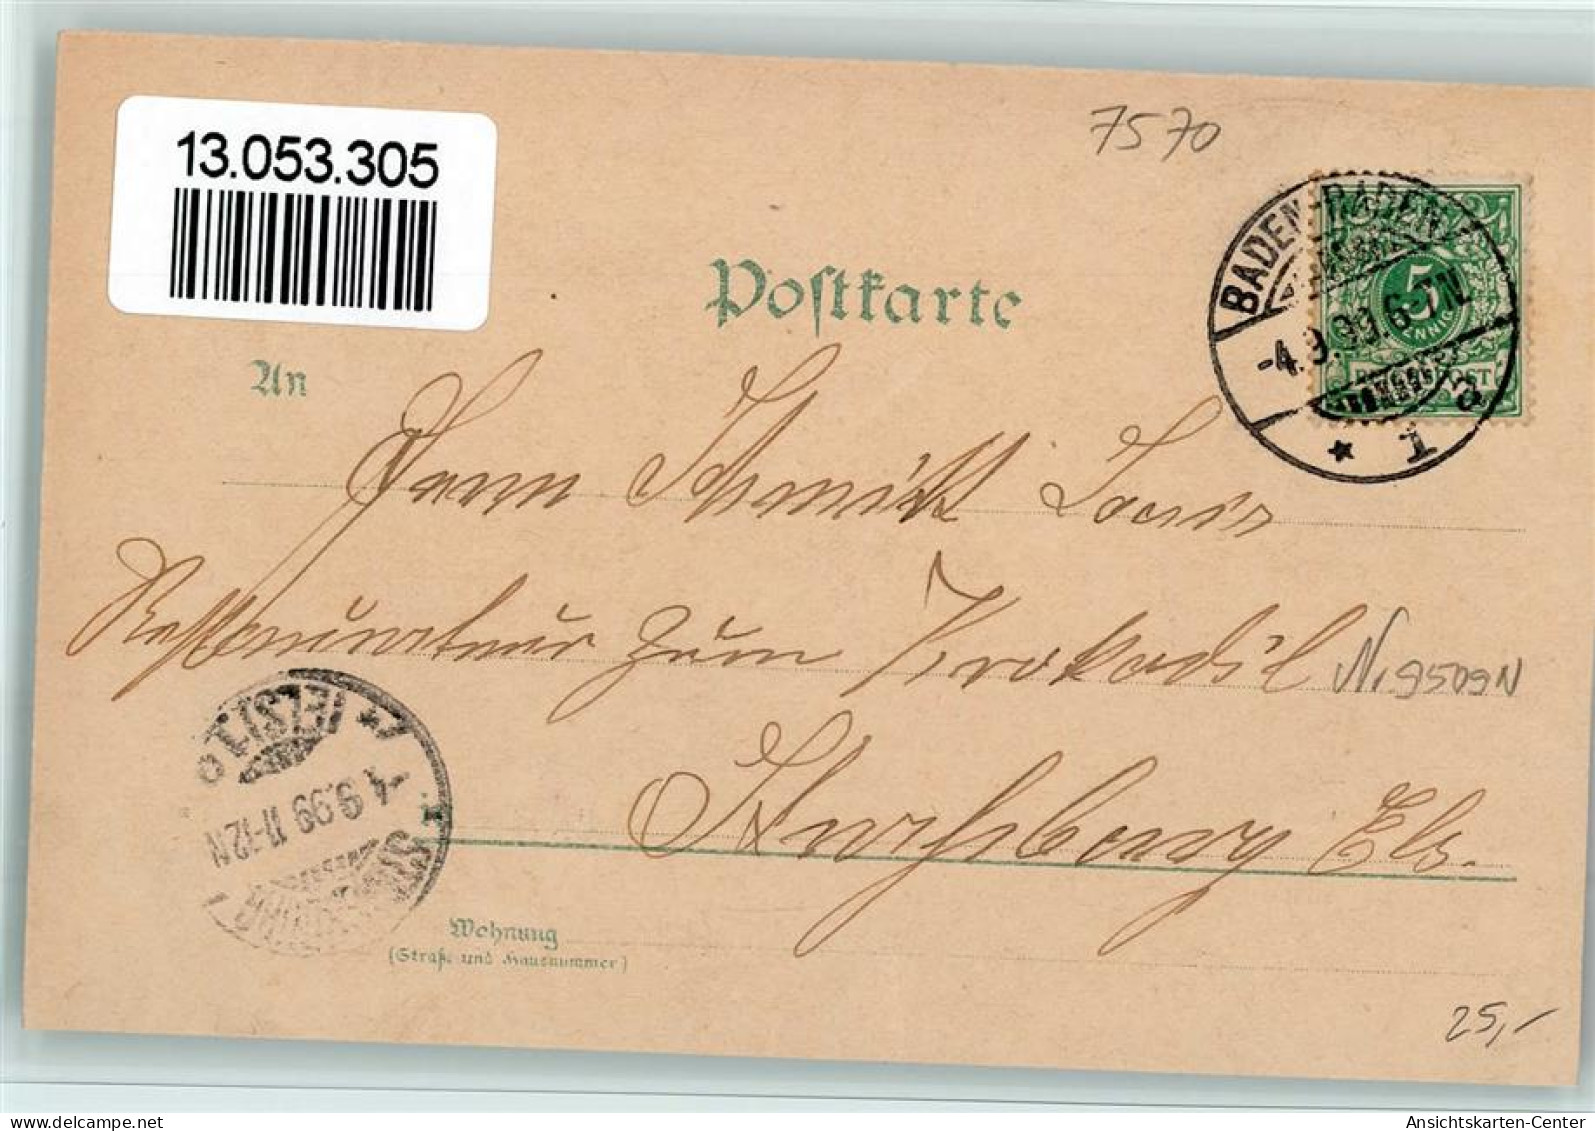 13.053.305
7570
BADEN-BADEN
-4.9.99.6-7N.
1 a
5
PFENNIG
REICHSPOST
Postkarte
An
Herrn Schmitt Louis
Restaurateur zum Krokodil
Nr 9509N
Straßburg Els.
STRASSBURG (ELS) 1
-4.9.99 11-12N
Wohnung
(Straße und Hausnummer)
25,-
Ansichtskarten-Center